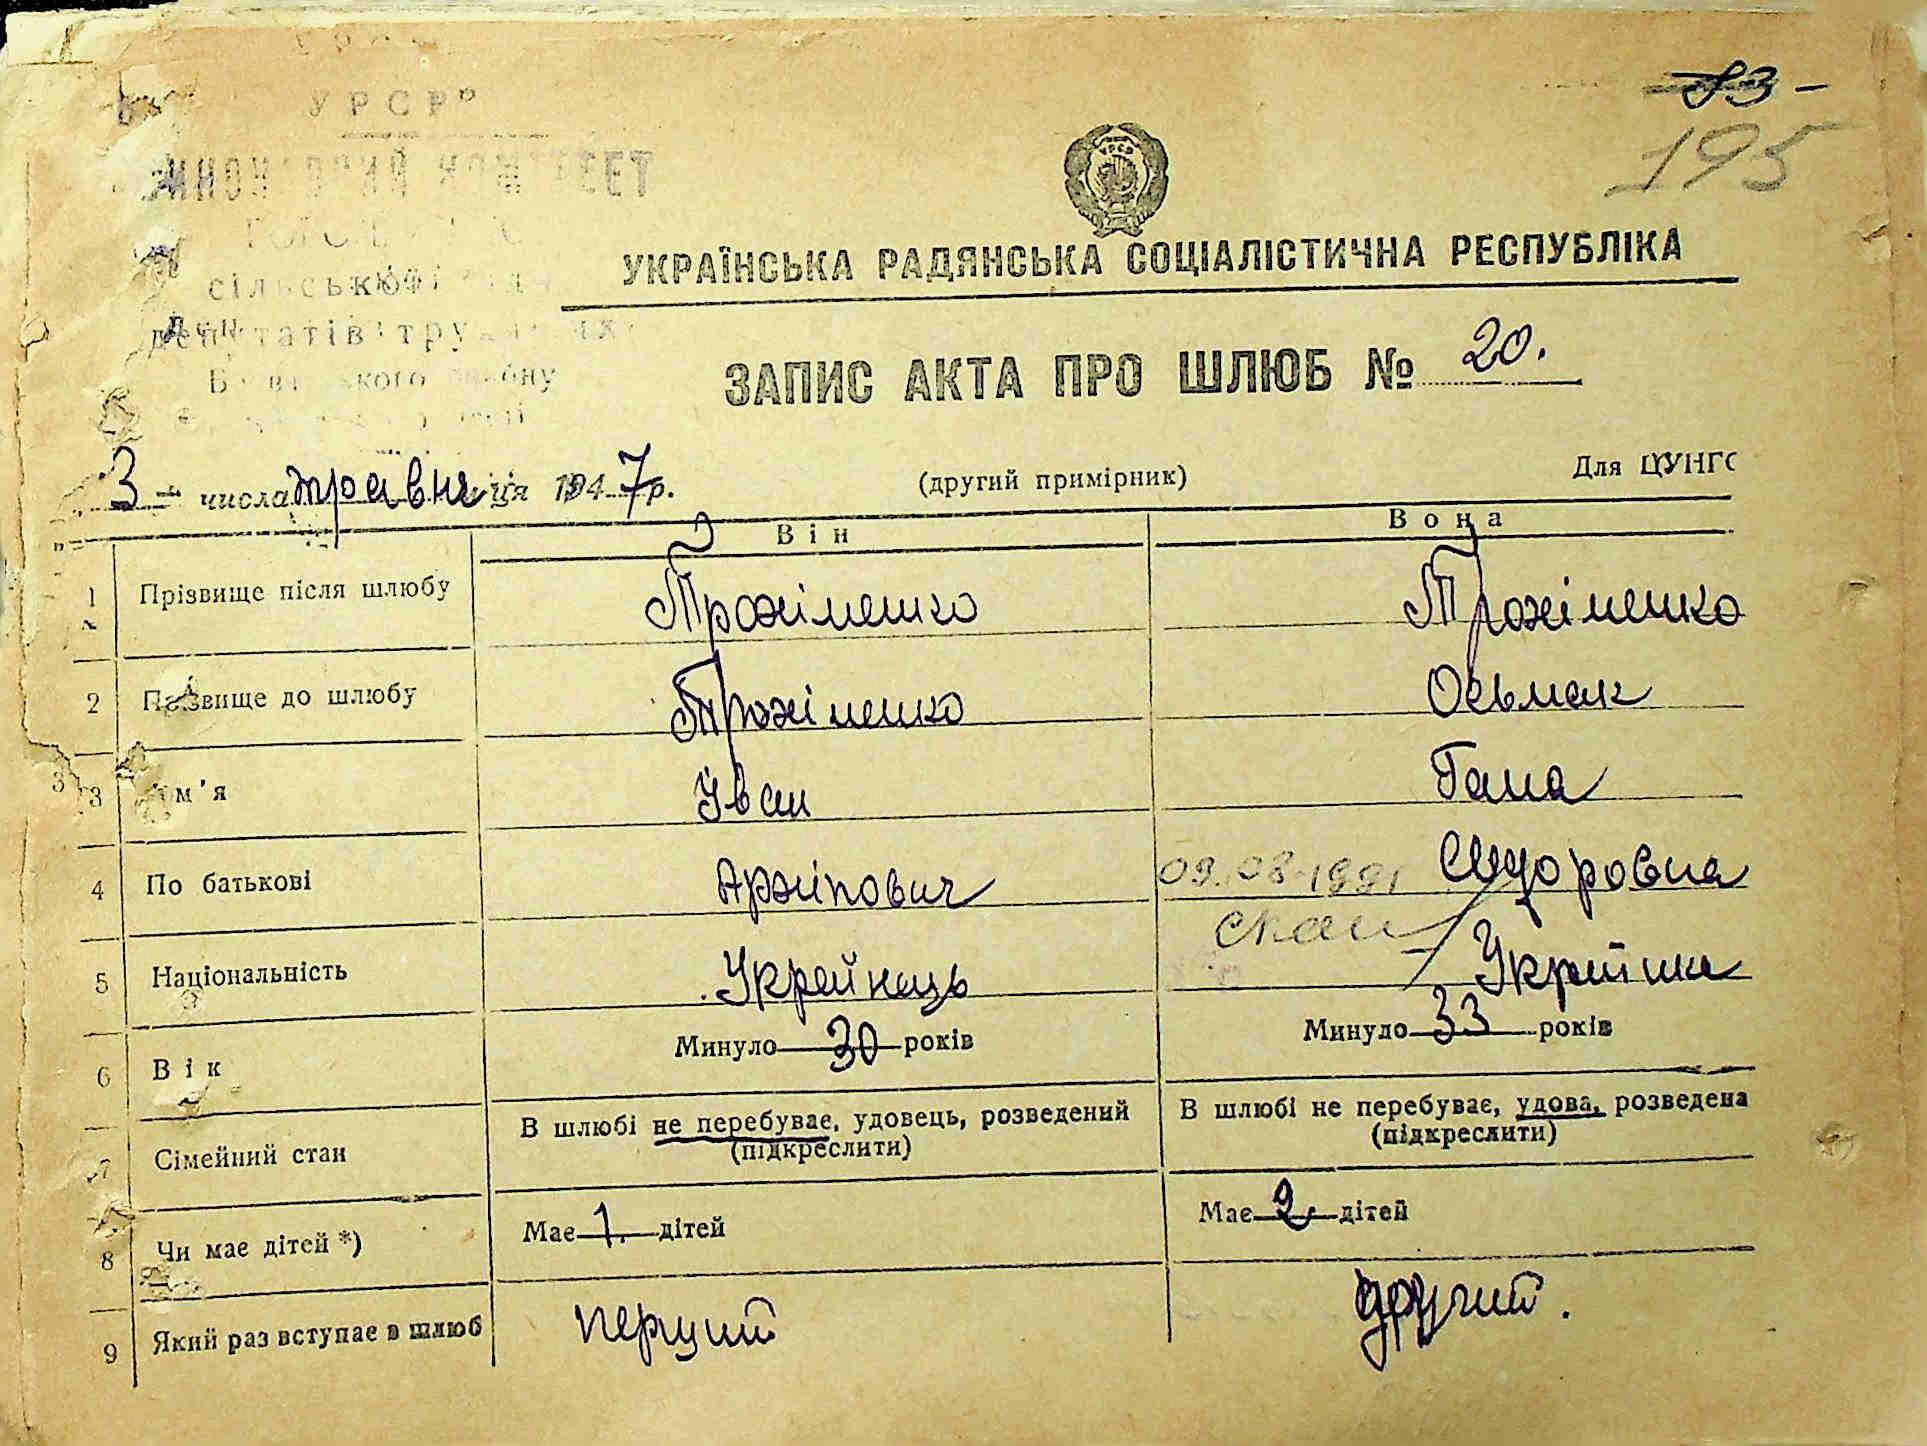 83 -
195
УРСР
КОМІТЕТ
сільської
депутатів трудящих
УРСР
УКРАЇНСЬКА РАДЯНСЬКА СОЦІАЛІСТИЧНА РЕСПУБЛІКА
ЗАПИС АКТА ПРО ШЛЮБ № 20.
3 числа травня ця 1947 р. (другий примірник) Для ЦУНГО
Він Вона
1 Прізвище після шлюбу Трохіменко Трохіменко
2 Прізвище до шлюбу Трохіменко Осьмак
3 м'я Іван Гана
4 По батькові Архіпович 09.08.1991 Сидоровна
скан
5 Національність Украйнець Українка
6 Вік Минуло 30 років Минуло 33 років
7 Сімейний стан В шлюбі не перебуває, удовець, розведений (підкреслити) В шлюбі не перебуває, удова, розведена (підкреслити)
8 Чи має дітей *) Має 1. дітей Має 2. дітей
9 Який раз вступає в шлюб перший другий.